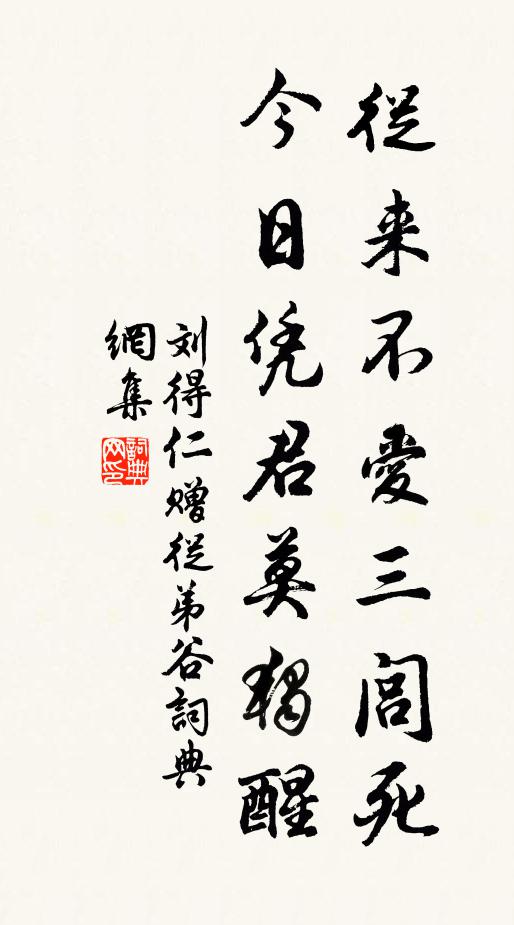 從来不愛三閭死
今日凭君莫獨醒
刘得仁赠從弟谷詞典
網集
詞典網印